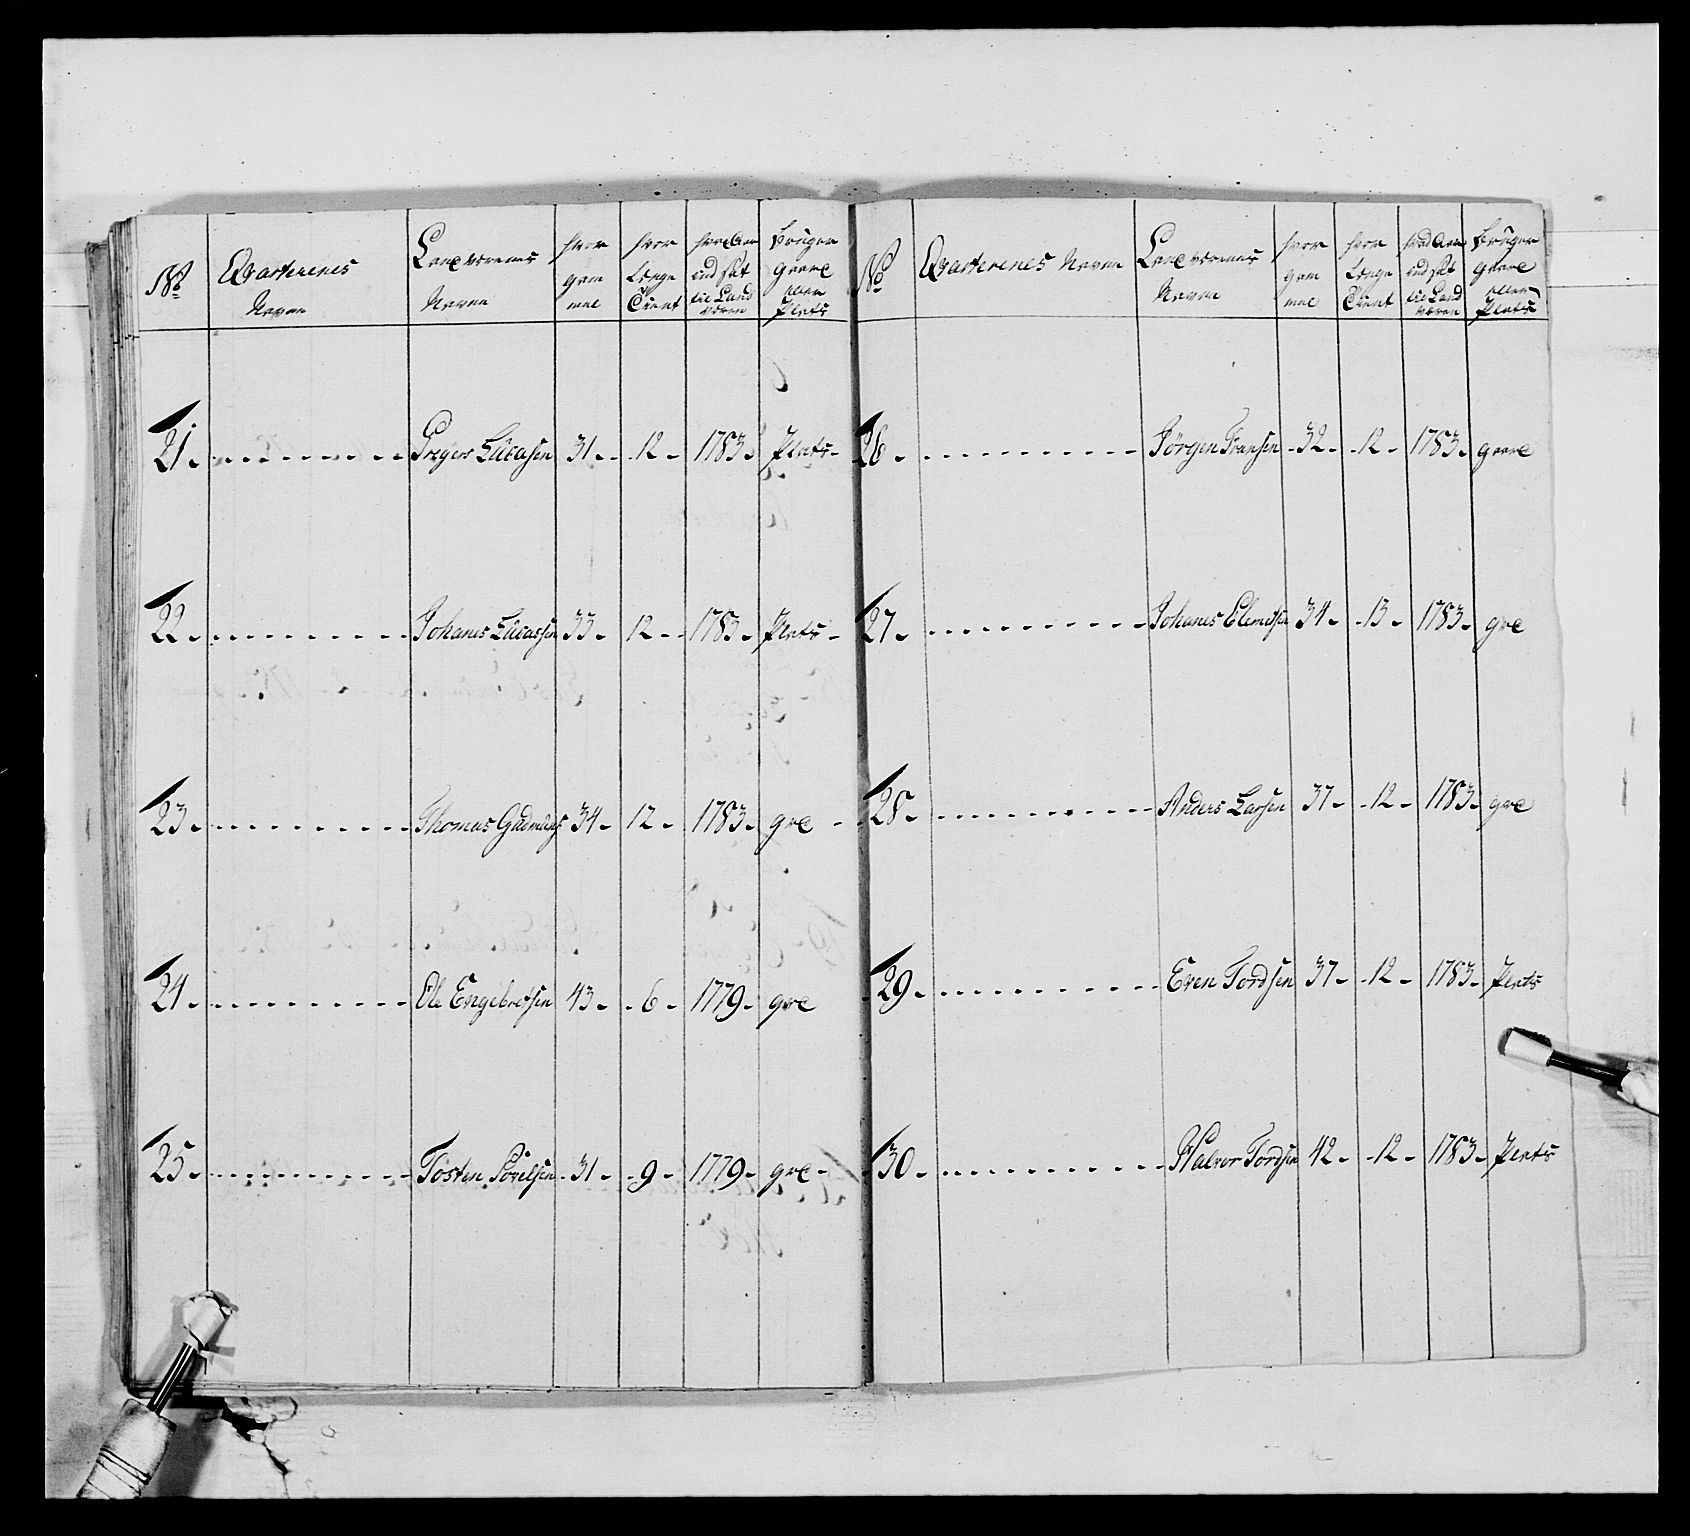 No
Qvarterenes
Navne
Landværnes
Navne
hvor
gam
mel
hvor
Længe
Tient
hvad Aar
ind sat
til Land
værn
bruger
gaard
eller
Plads
21 - Gregers Lucasen 31 - 12 - 1783 - Plads -
22 - Johanes Lucassen 33 - 12 - 1783 - Plads -
23 - Thomas Gudmuns 34 - 12 - 1783 - grd -
24 - Ole Engebretsen 43 - 6 - 1779 - grd
25 - Tosten Sörelsen 31 - 9 - 1779 - grd -
No
Qvarterenes Navne
Landværnes
Navne
hvor
gam
mel
hvor
Længe
Tient
hvad Aar
ind sat
til Land
værn
bruger
gaard
eller
Plads
26 - Jörgen Fransen 32 - 12 - 1783 - gaard
27 - Johanes Clemetsen 34 - 13 - 1783 - grd
28 - Anders Larsen 37 - 12 - 1783 - grd
29 - Even Tordsen 37 - 12 - 1783 - Plads
30 - Halvor Tordsen 42 - 12 - 1783 - Plads